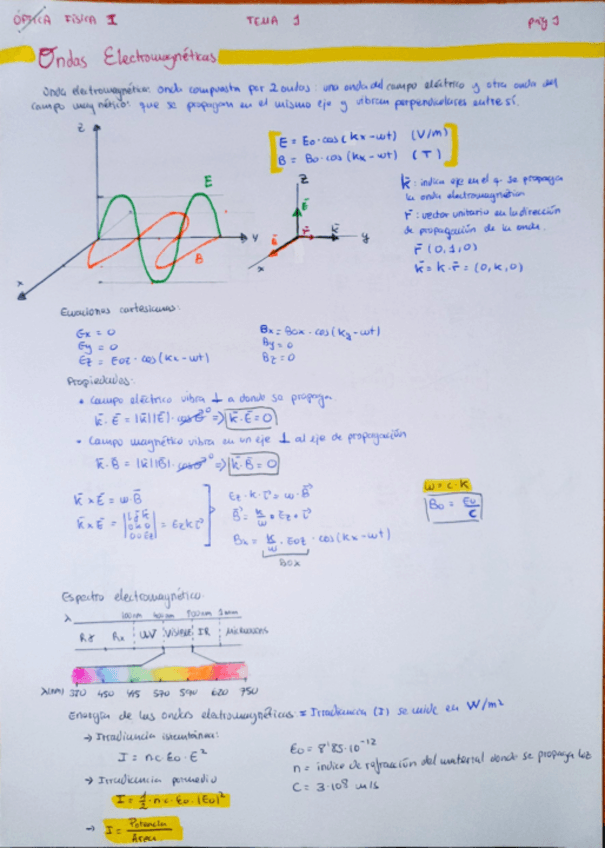 ÓPTICA FÍSICA I TEMA 1 pág 1
Ondas Electromagnéticas
Onda electromagnética: onda compuesta por 2 ondas: una onda del campo eléctrico y otra onda del
campo magnético: que se propagan en el mismo eje y vibran perpendiculares entre sí.
E = E₀·cos(kx-wt) (V/m)
B = B₀·cos(kx-wt) (T)
z
E
y
B
x
z
E
r
k
y
B
x
k̄: indica eje en el q. se propaga
la onda electromagnética
r̄: vector unitario en la dirección
de propagación de la onda.
r̄ (0,1,0)
k̄ = k·r̄ = (0,k,0)
Ecuaciones cartesianas:
Ex = 0 Bx = Box·cos(ky-wt)
Ey = 0 By = 0
Ez = Eoz·cos(kx-wt) Bz = 0
Propiedades:
• Campo eléctrico vibra ⊥ a donde se propaga
k̄·Ē = |k̄||Ē|·cos 0 => k̄·Ē = 0
• Campo magnético vibra en un eje ⊥ al eje de propagación
k̄·B̄ = |k̄||B̄|·cos 0 => k̄·B̄ = 0
k̄ x Ē = w·B̄
k̄ x Ē = |i j k / 0 k 0 / 0 0 Ez| = Ez k i⃗
Ez·k·i⃗ = w·B⃗
B⃗ = k/w · Ez · i⃗
Bx = k/w · Eoz · cos(kx-wt)
Box
w = c·k
B₀ = E₀/c
Espectro electromagnético:
λ 100nm 400nm 700nm 1mm
Rγ Rx UV VISIBLE IR MICROONDAS
λ(nm) 450 495 570 590 620 750
Energía de las ondas electromagnéticas = Irradiancia (I) se mide en W/m²
→ Irradiancia instantánea:
I = n c·ε₀·E²
→ Irradiancia promedio
I = 1/2·n·c·ε₀·|E₀|²
→ I = Potencia/Área
ε₀ = 8'85·10⁻¹²
n = índice de refracción del material donde se propaga
c = 3·10⁸ m/s